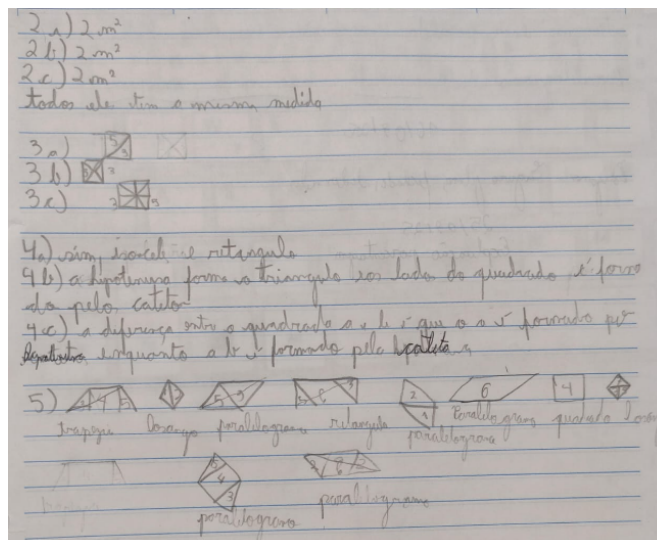 2 a) 2 m²
2 b) 2 m²
2 c) 2 m²
todos ele tem a mesma medida
3 a) 5 3
3 b)
3 c) 3 5
4a) sim, isocele e retangulo
4 b) a hipotenusa forma o triangulo e os lado do quadrado é forma
do pelo catetos
4 c) a diferença entre o quadrado a e b é que o a é formado por
enquanto o b é formado pela
5) 4 5 3 6 2 6 4
trapezu losango paralelogramo retangulo paralelogramo quadrado
paralelogramo
5 4 3 6
paralelogramo paralelogramo